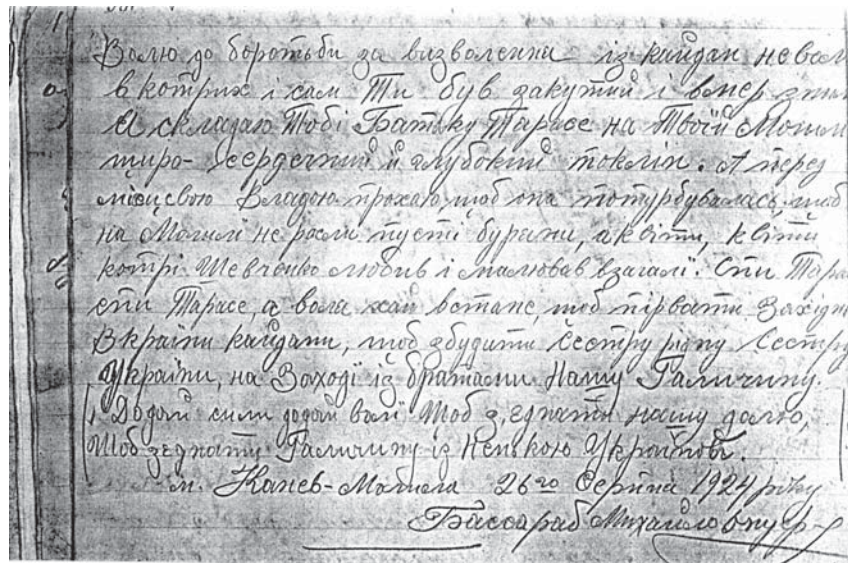 Волю до боротьби за визволення із кайдан невол
в котрих і сам Ти був закутий і вмер
Я складаю Тобі Батьку Тарасе на Твоїй Могилі
щиро-сердечний й глубокий поклін. А перед
місцевою Владою прохаю, щоб она потурбувалась, щоб
на Могилі не росли пусті буряни, а квіти, квіти
котрі Шевченко любив і малював взагалі. Спи Тара
спи Тарасе, а воля хай встане, щоб пірвати Західн
Вкраїни кайдани, щоб збудити Сестру рідну Сестру
України, на Заході із братами Нашу Галичину.
Додай сили додай волі Щоб з,еднати нашу долю,
Щоб зеднати Галичину із Ненькою Україною.
м. Канев-Могила 26го Серпня 1924 року
Бассараб Михайло